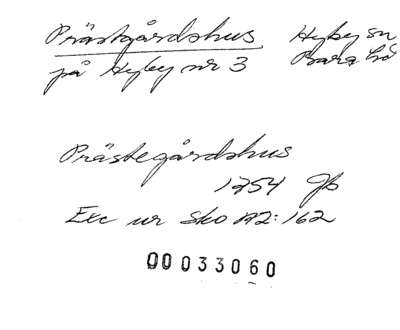 Prästgårdshus Hyby sn
på Hyby nr 3 Bara hd
Prästegårdshus
1754
Exc ur Sko A2:162
00033060